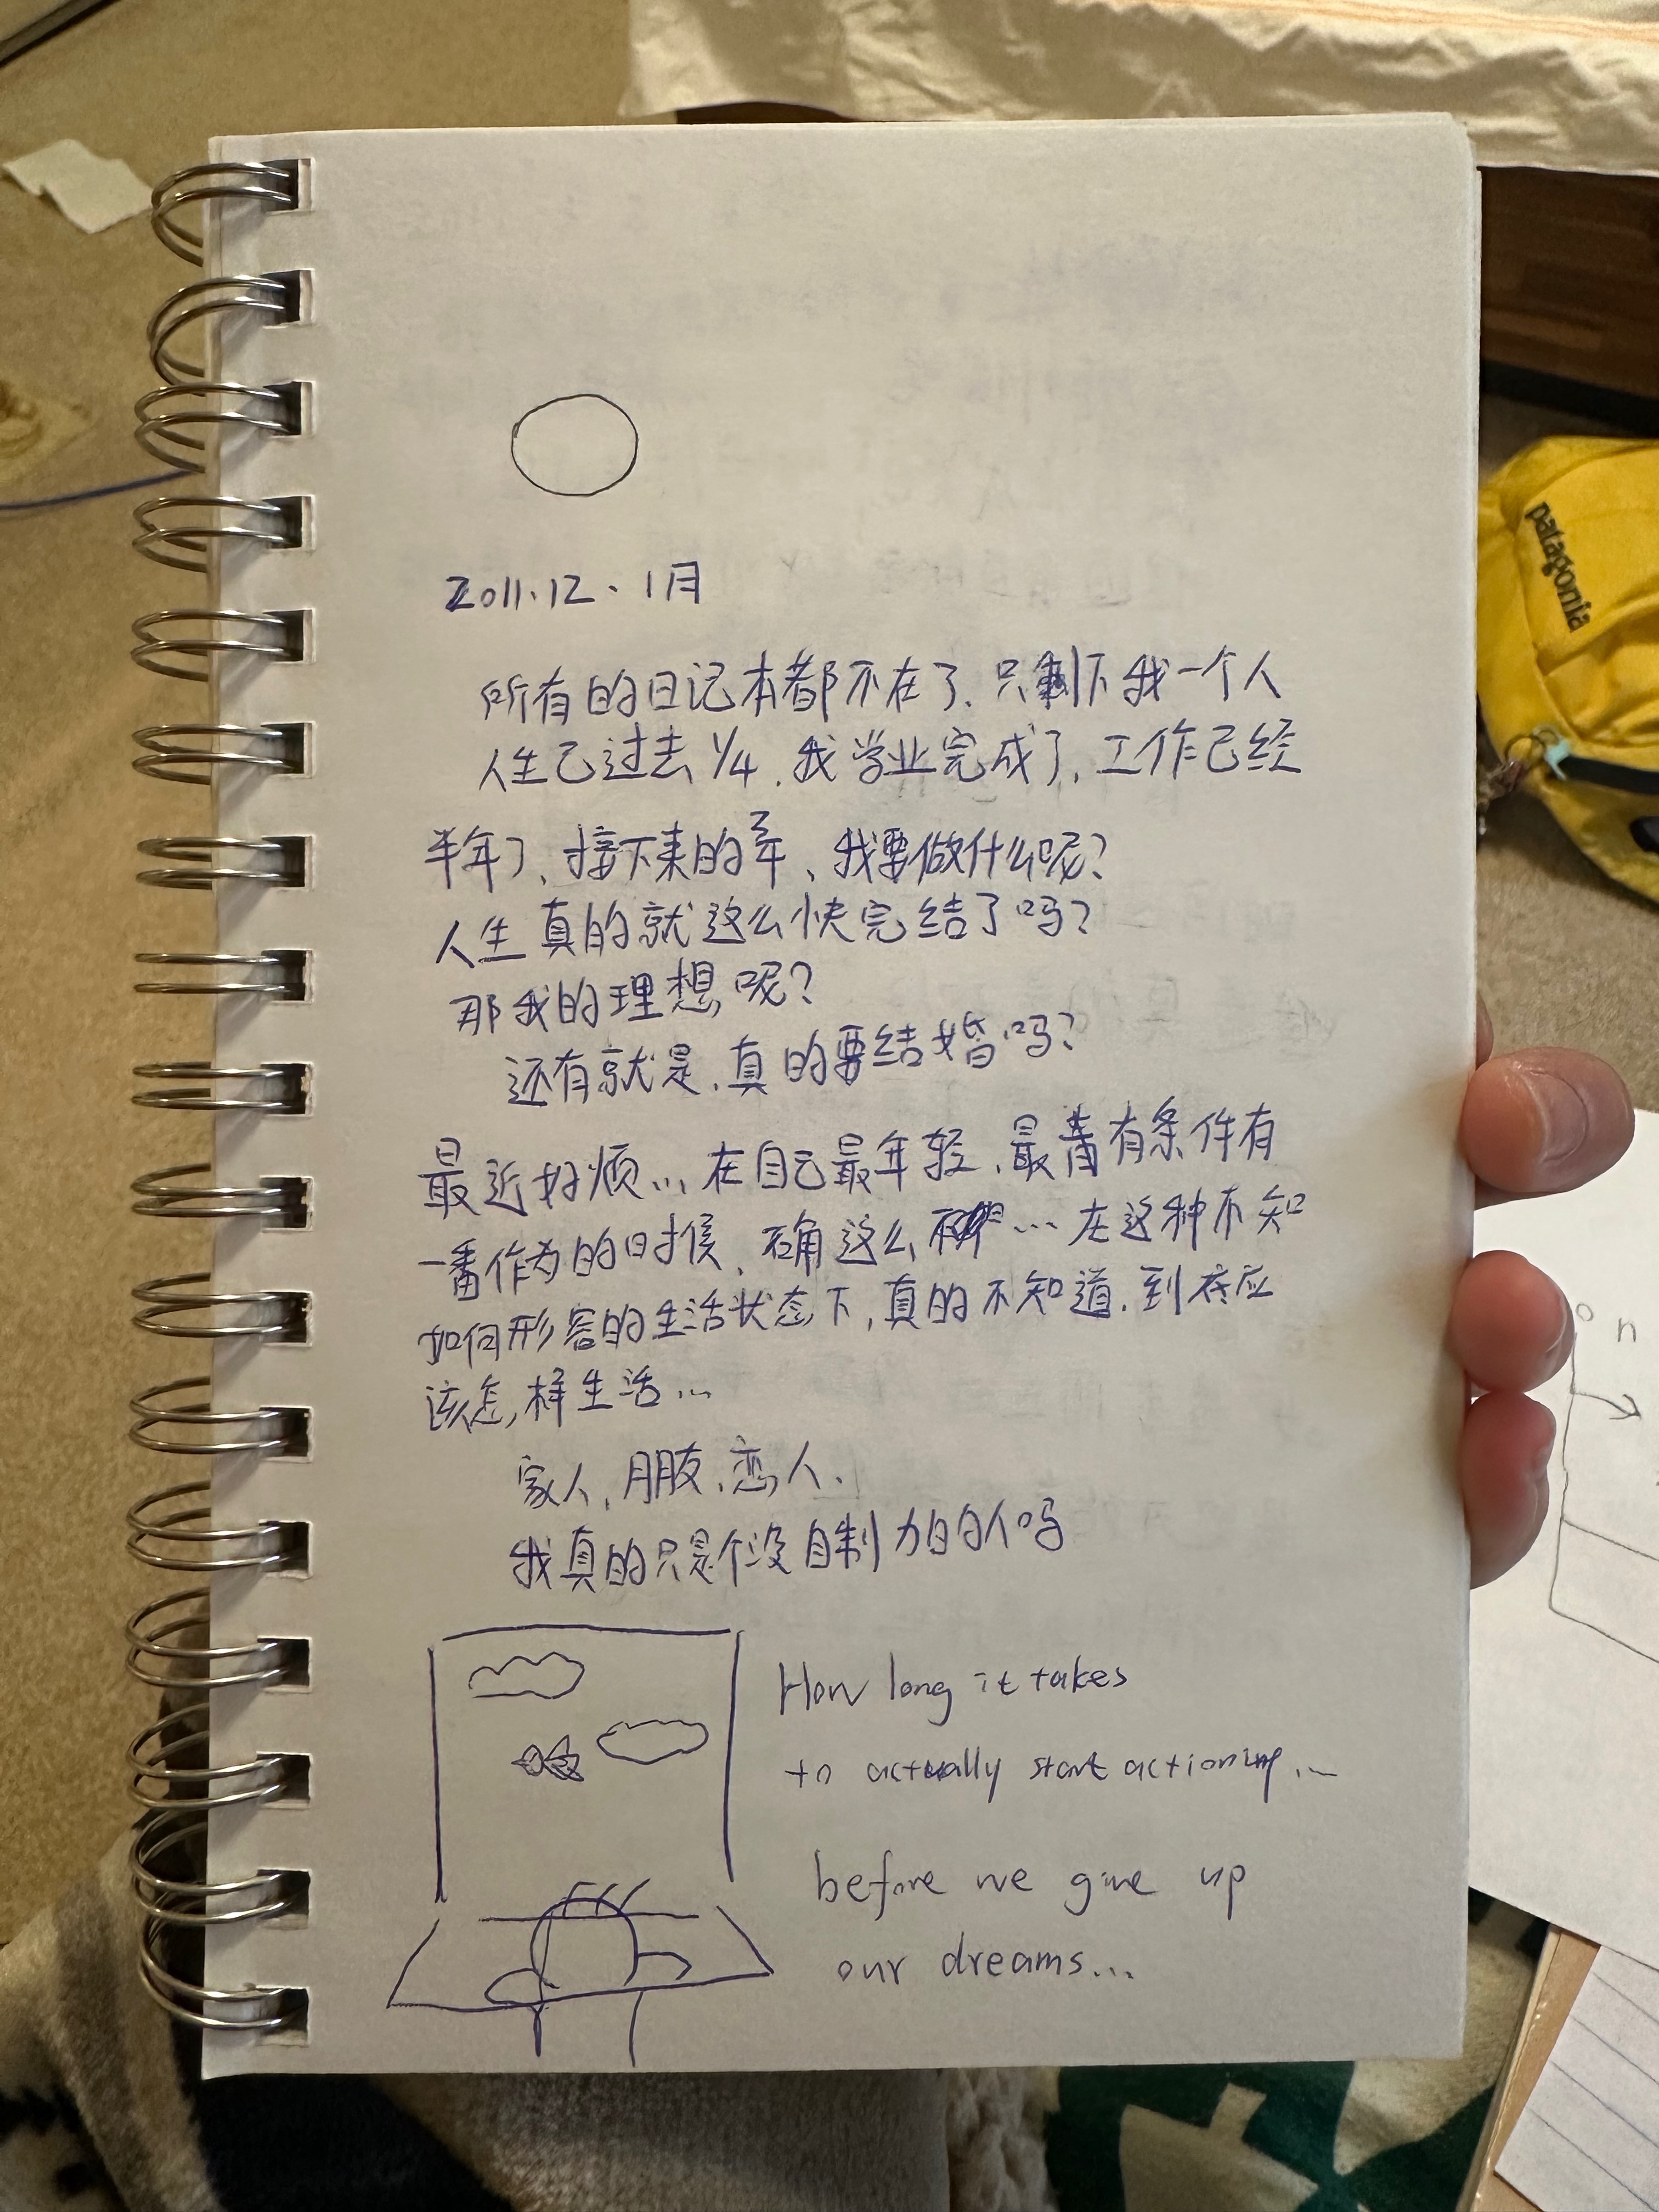 2011.12.1月
所有的日记本都不在了.只剩下我一个人
人生己过去1/4.我学业完成了,工作己经
半年了、接下来的年、我要做什么呢?
人生真的就这么快完结了吗?
那我的理想呢?
还有就是.真的要结婚吗?
最近好烦...在自己最年轻.最有条件有
一番作为的时候、确这么...在这种不知
如何形容的生活状态下,真的不知道.到底应
该怎样生活...
家人,朋友.恋人.
我真的只是个没自制力的人吗
How long it takes
to actually start actioning...
before we give up
our dreams...
patagonia
n